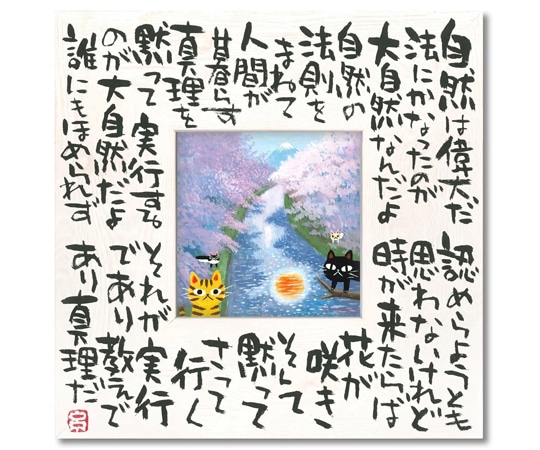 自然は偉大だ
法にかなったのが
大自然なんだよ
自然の
法則を
まねて
人間が
其暮らす
真理を
黙って実行する
のが大自然だよ
誰にもほめられず
認めらようとも
思わないけれど
時が来たらば
花が
咲き
そして
黙って
さって
行く
それが実行
であり教えで
あり真理だ